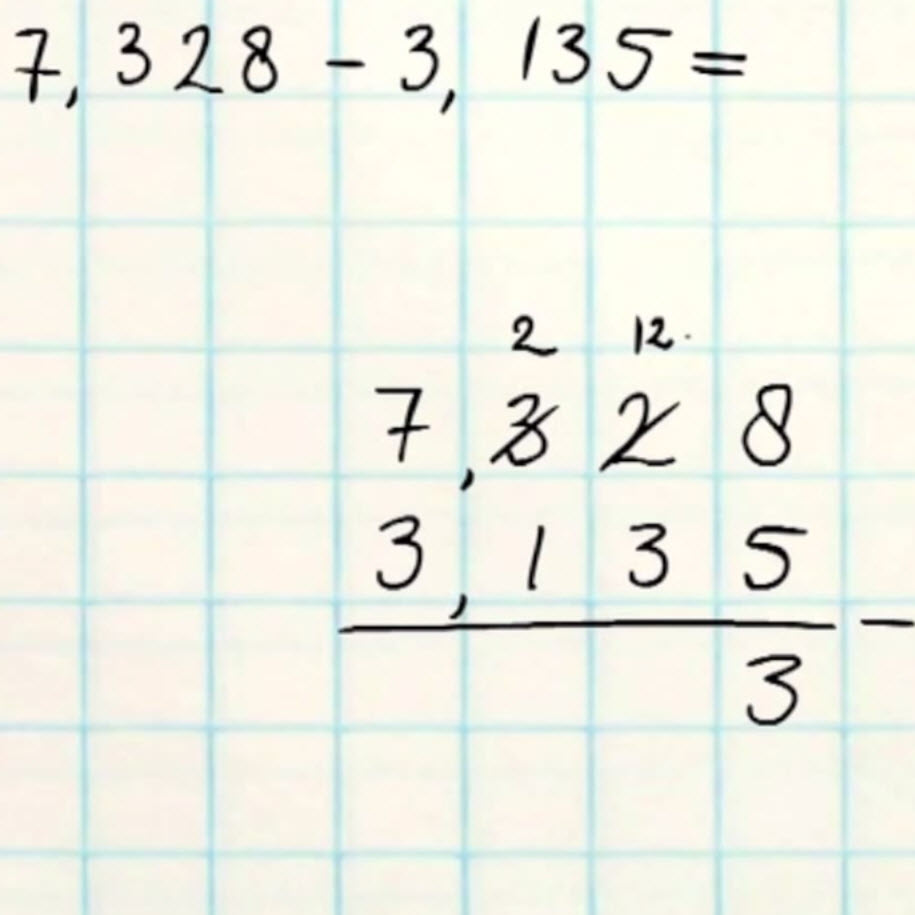 7,328 - 3,135 =
2 12
7,328
3,135 -
3